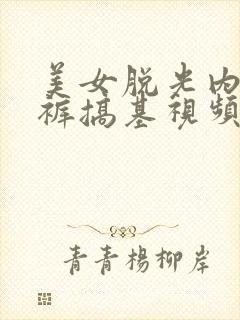 美女脱光内
裤搞基視頻
青青楊柳岸